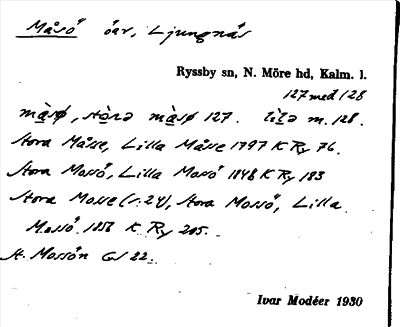 Måsö öar, Ljungnäs
Ryssby sn, N. Möre hd, Kalm. l.
127 med 128
màsø, stòra màsø 127. lìla m. 128.
Stora Måsse, Lilla Måsse 1797 K Ry 76.
Stora Mossö, Lilla Mossö 1848 K Ry 183
Stora Mosse (r. 24), Stora Mossö, Lilla
Mossö 1856 K Ry 205.
St. Mossön GS 22.
Ivar Modéer 1930